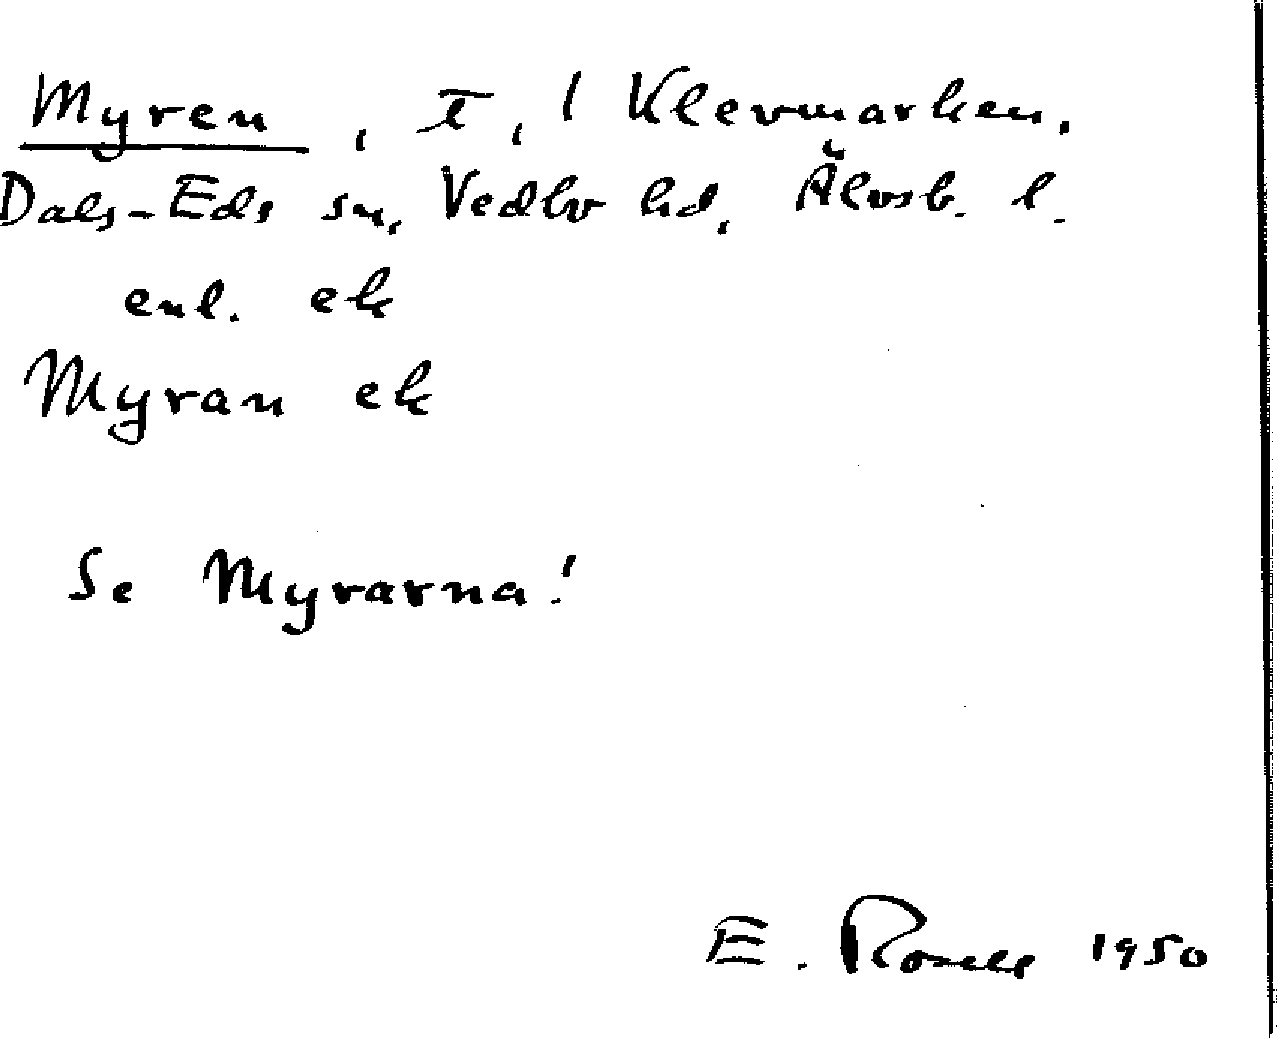 Myren, T, i Klevmarken,
Dals-Eds sn, Vedbo hd, Älvsb. l.
enl. ek
Myran ek
Se Myrarna!
E. Rosell 1950